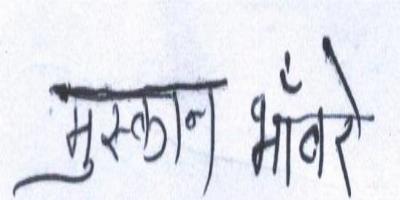 मुस्कान भाँवरे